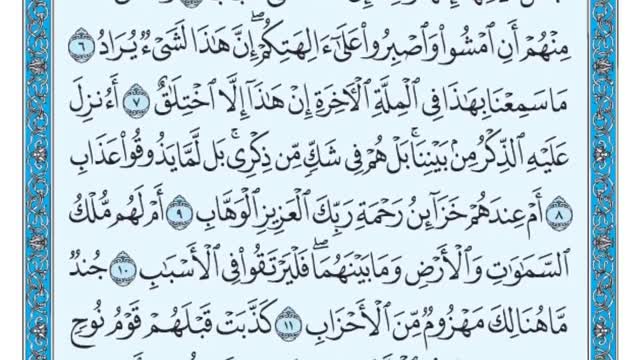 مِنْهُمْ أَنِ ٱمْشُوا۟ وَٱصْبِرُوا۟ عَلَىٰٓ ءَالِهَتِكُمْ ۖ إِنَّ هَٰذَا لَشَىْءٌ يُرَادُ ٦
مَا سَمِعْنَا بِهَٰذَا فِى ٱلْمِلَّةِ ٱلْءَاخِرَةِ إِنْ هَٰذَآ إِلَّا ٱخْتِلَٰقٌ ٧ أَءُنزِلَ
عَلَيْهِ ٱلذِّكْرُ مِنۢ بَيْنِنَا ۚ بَلْ هُمْ فِى شَكٍّ مِّن ذِكْرِى ۖ بَل لَّمَّا يَذُوقُوا۟ عَذَابِ
٨ أَمْ عِندَهُمْ خَزَآئِنُ رَحْمَةِ رَبِّكَ ٱلْعَزِيزِ ٱلْوَهَّابِ ٩ أَمْ لَهُم مُّلْكُ
ٱلسَّمَٰوَٰتِ وَٱلْأَرْضِ وَمَا بَيْنَهُمَا ۖ فَلْيَرْتَقُوا۟ فِى ٱلْأَسْبَٰبِ ١٠ جُندٌ
مَّا هُنَالِكَ مَهْزُومٌ مِّنَ ٱلْأَحْزَابِ ١١ كَذَّبَتْ قَبْلَهُمْ قَوْمُ نُوحٍ